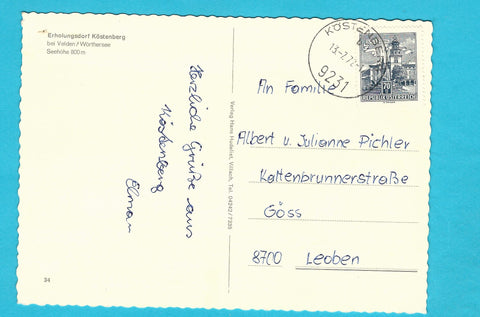 Erholungsdorf Köstenberg
bei Velden / Wörthersee
Seehöhe 800 m
Herzliche Grüße aus
Köstenberg
Elmar
34
Verlag Hans Hudelist, Villach, Tel. 04242/7335
KÖSTENBERG
13.-7.72
9231
70
REPUBLIK ÖSTERREICH
An Familie
Albert u. Julianne Pichler
Kaltenbrunnerstraße
Göss
8700 Leoben